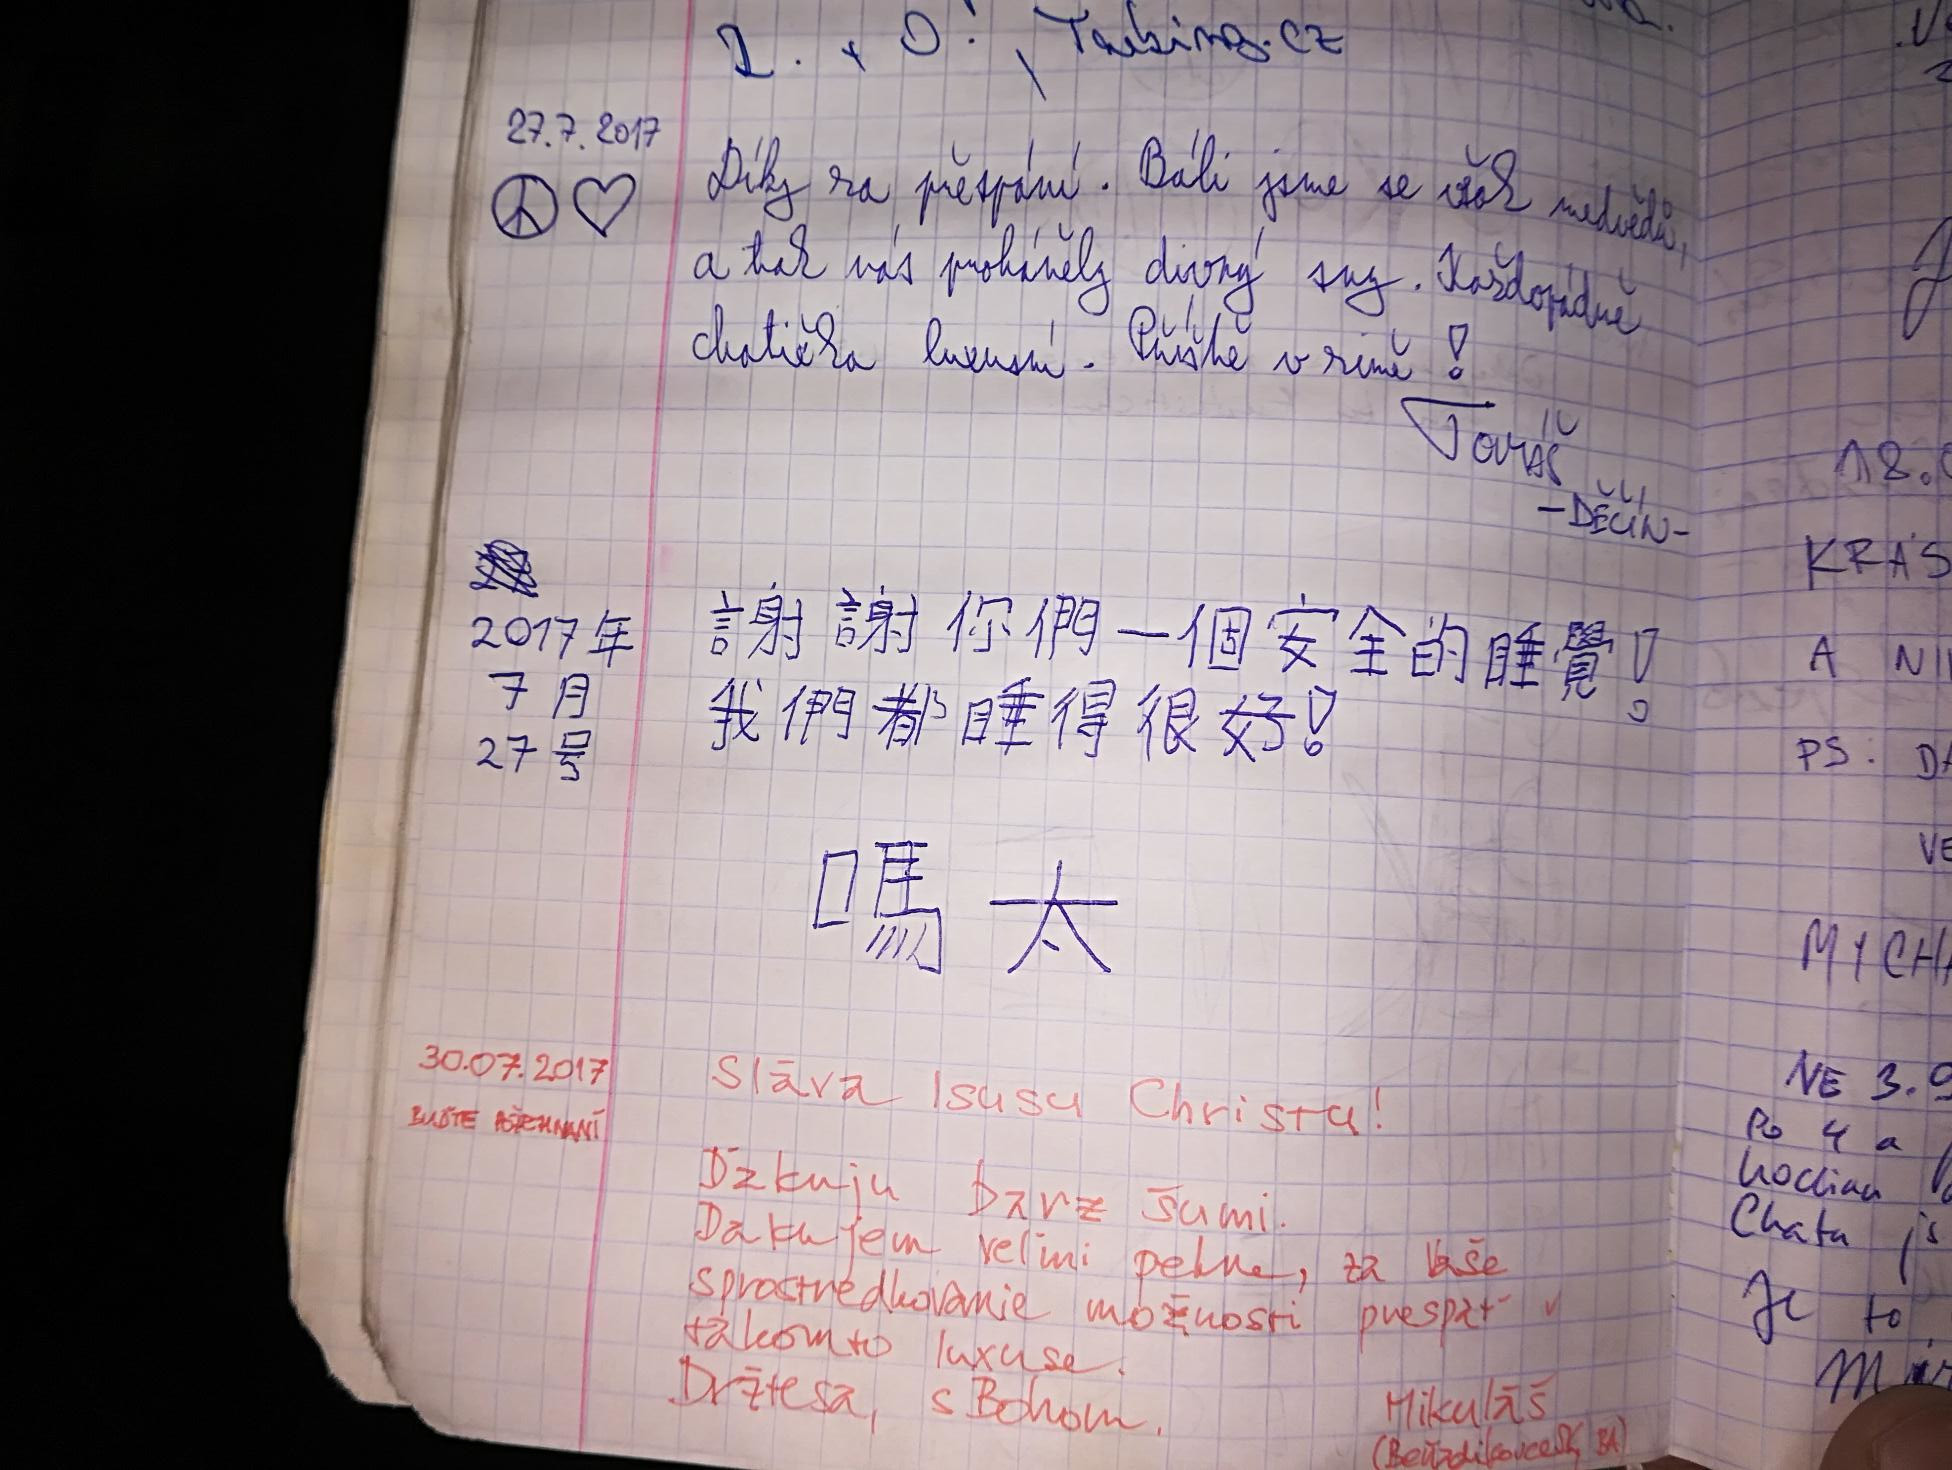 27.7.2017
Díky za přespání. Báli jsme se však medvědů,
a tak nás proháněly divný sny. Každopádně
chatička luxusní. Příště v zimě!
Tomáš
-DĚČÍN-
2017年
7月
27号
謝謝你們一個安全的睡覺!
我們都睡得很好!
嗎太
30.07.2017
BUĎTE POŽEHNANÍ
Sláva Isusu Christu!
Dzkuju barz šumi.
Dakujem veľmi pekne, za Vaše
sprostredkovanie možnosti prespať v
takomto luxuse.
Držte sa, s Bohom.
Mikuláš
18.
KRÁS
A
PS: DA
VE
MYCH
NE 3.9
Po 4 a
hodinu
Chata
Je to